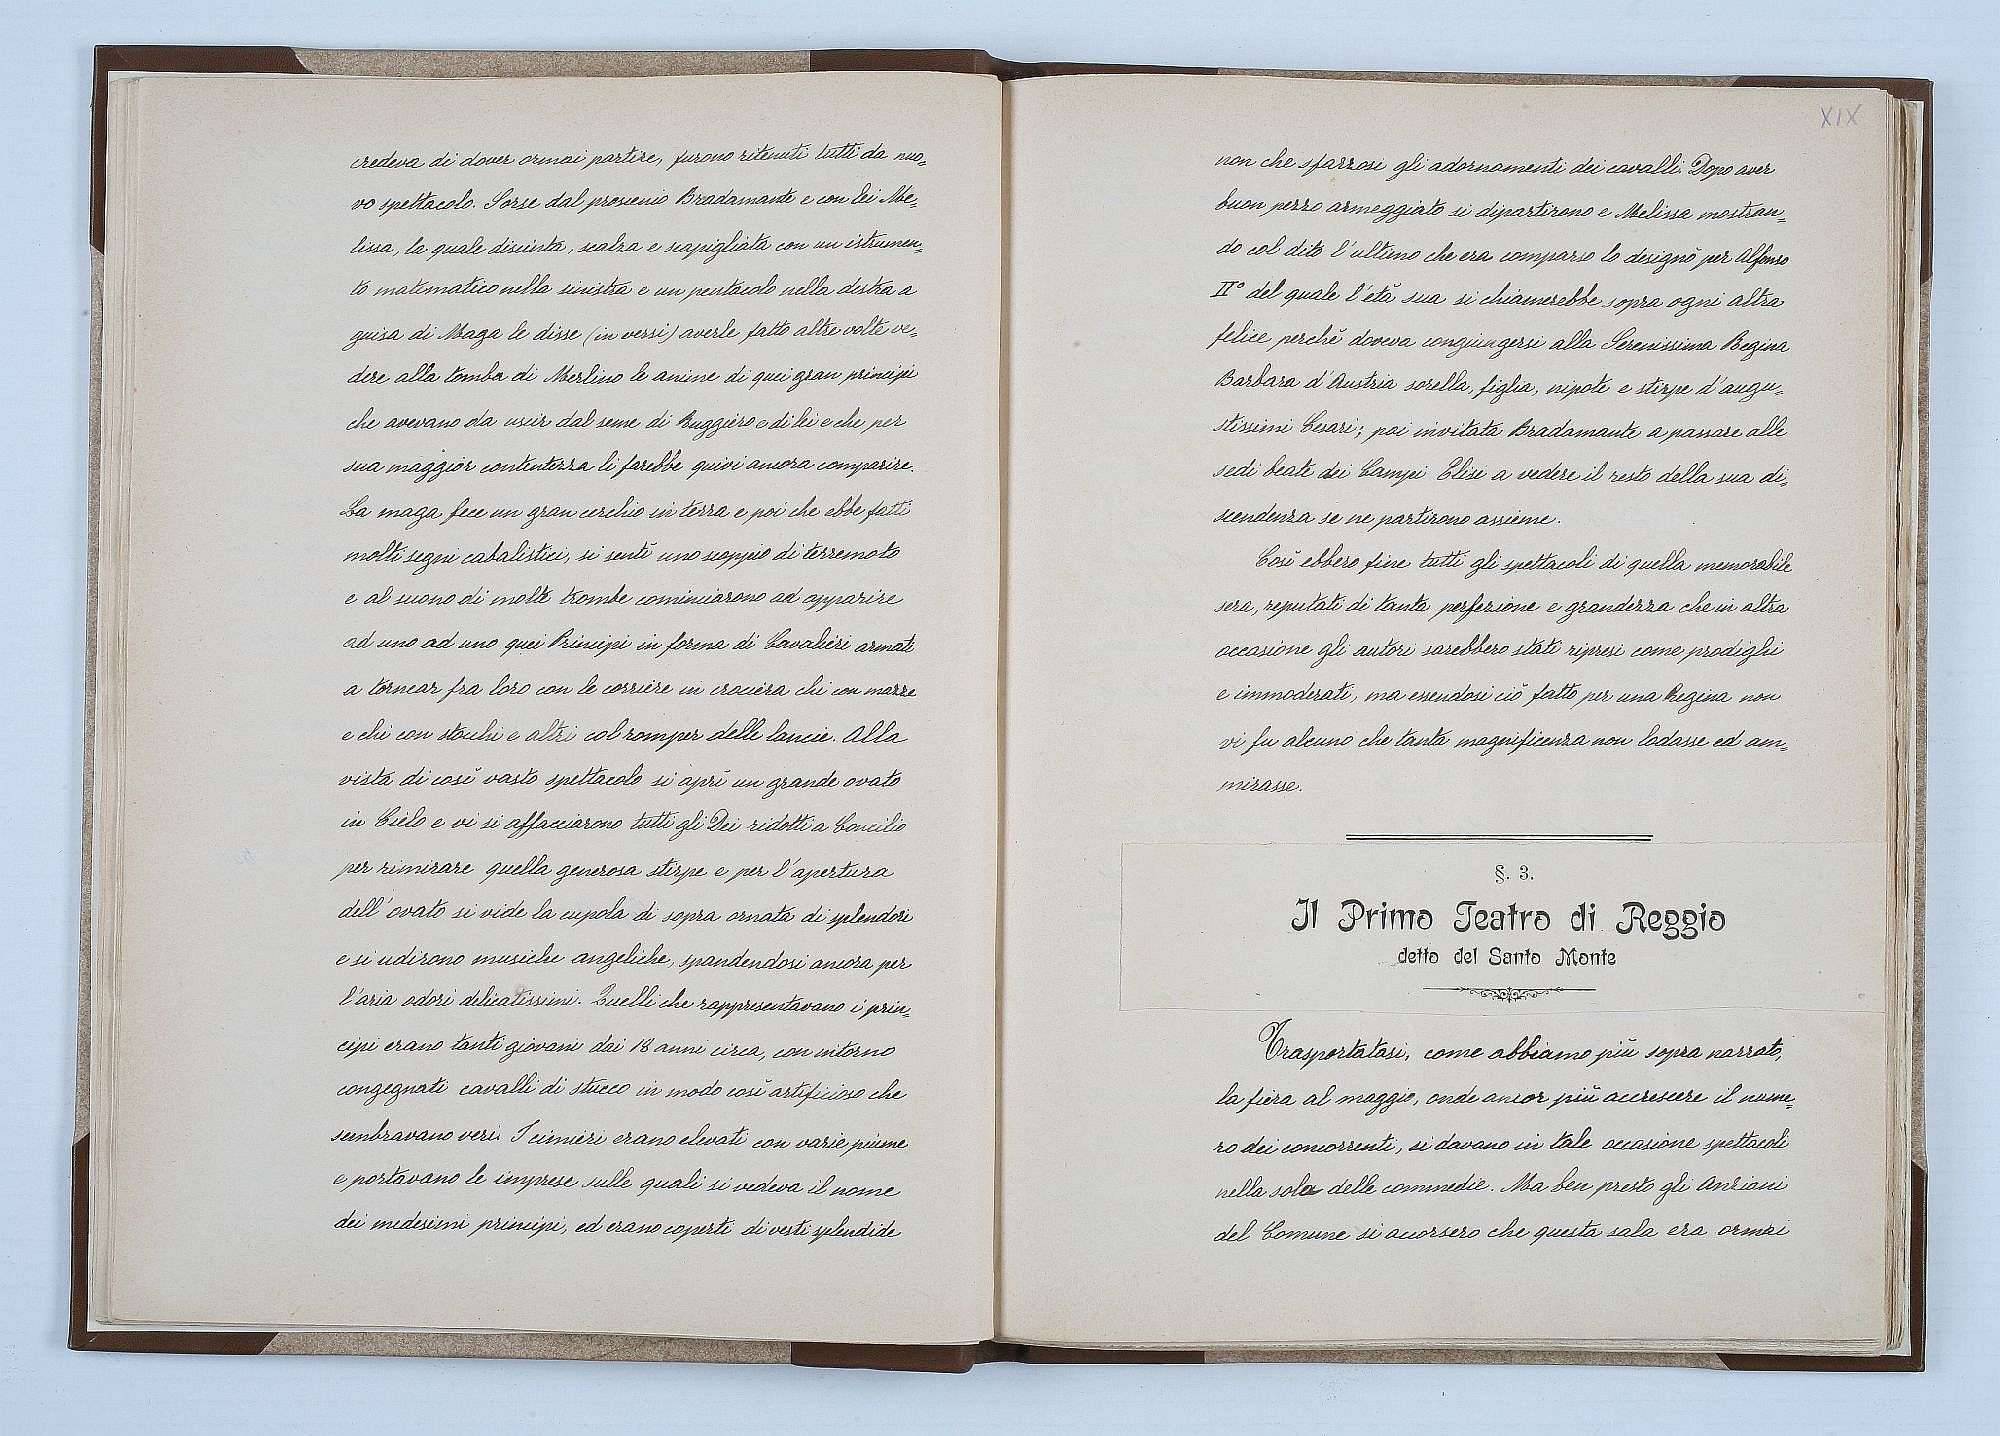 credeva di dover ormai partire, furono ritenuti tutti da nuo=
vo spettacolo. Sorse dal proscenio Bradamante e con lei Me=
lissa, la quale discinta, scalza e scapigliata con un istrumen=
to matematico nella sinistra e un pentacolo nella destra a
guisa di Maga le disse (in versi) averle fatto altre volte ve=
dere alla tomba di Merlino le anime di quei gran principi
che avevano da uscir dal seme di Ruggiero e di lei e che per
sua maggior contentezza li farebbe quivi ancora comparire.
La maga fece un gran cerchio in terra e poi che ebbe fatti
molti segni cabalistici, si sentì uno scoppio di terremoto
e al suono di molte trombe cominciarono ad apparire
ad uno ad uno quei Principi in forma di Cavalieri armati
a tornear fra loro con le corriere in crociera chi con mazze
e chi con stocchi e altri col romper delle lancie. Alla
vista di così vasto spettacolo si aprì un grande ovato
in Cielo e vi si affacciarono tutti gli Dei ridotti a Concilio
per rimirare quella generosa stirpe e per l'apertura
dell'ovato si vide la cupola di sopra ornata di splendori
e si udirono musiche angeliche, spandendosi ancora per
l'aria odori delicatissimi. Quelli che rappresentavano i prin=
cipi erano tanti giovani dai 18 anni circa, con intorno
congegnati cavalli di stucco in modo così artificioso che
sembravano veri. I cimieri erano elevati con varie piume
e portavano le imprese sulle quali si vedeva il nome
dei medesimi principi, ed erano coperti di vesti splendide
XIX
non che sfarzosi gli adornamenti dei cavalli. Dopo aver
buon pezzo armeggiato si dipartirono e Melissa mostran=
do col dito l'ultimo che era comparso lo designò per Alfonso
II° del quale l'età sua si chiamerebbe sopra ogni altra
felice perchè doveva congiungersi alla Serenissima Regina
Barbara d'Austria sorella, figlia, nipote e stirpe d'augu=
stissimi Cesari; poi invitata Bradamante a passare alle
sedi beate dei Campi Elisi a vedere il resto della sua di=
scendenza se ne partirono assieme.
Così ebbero fine tutti gli spettacoli di quella memorabile
sera, reputati di tanta perfezione e grandezza che in altra
occasione gli autori sarebbero stati ripresi come prodighi
e immoderati, ma essendosi ciò fatto per una Regina non
vi fu alcuno che tanta magnificenza non lodasse ed am=
mirasse.
§. 3.
Il Primo Teatro di Reggio
detto del Santo Monte
Trasportatasi, come abbiamo più sopra narrato,
la fiera al maggio, onde ancor più accrescere il nume=
ro dei concorrenti, si davano in tale occasione spettacoli
nella sola delle commedie. Ma ben presto gli Anziani
del Comune si accorsero che questa sala era ormai